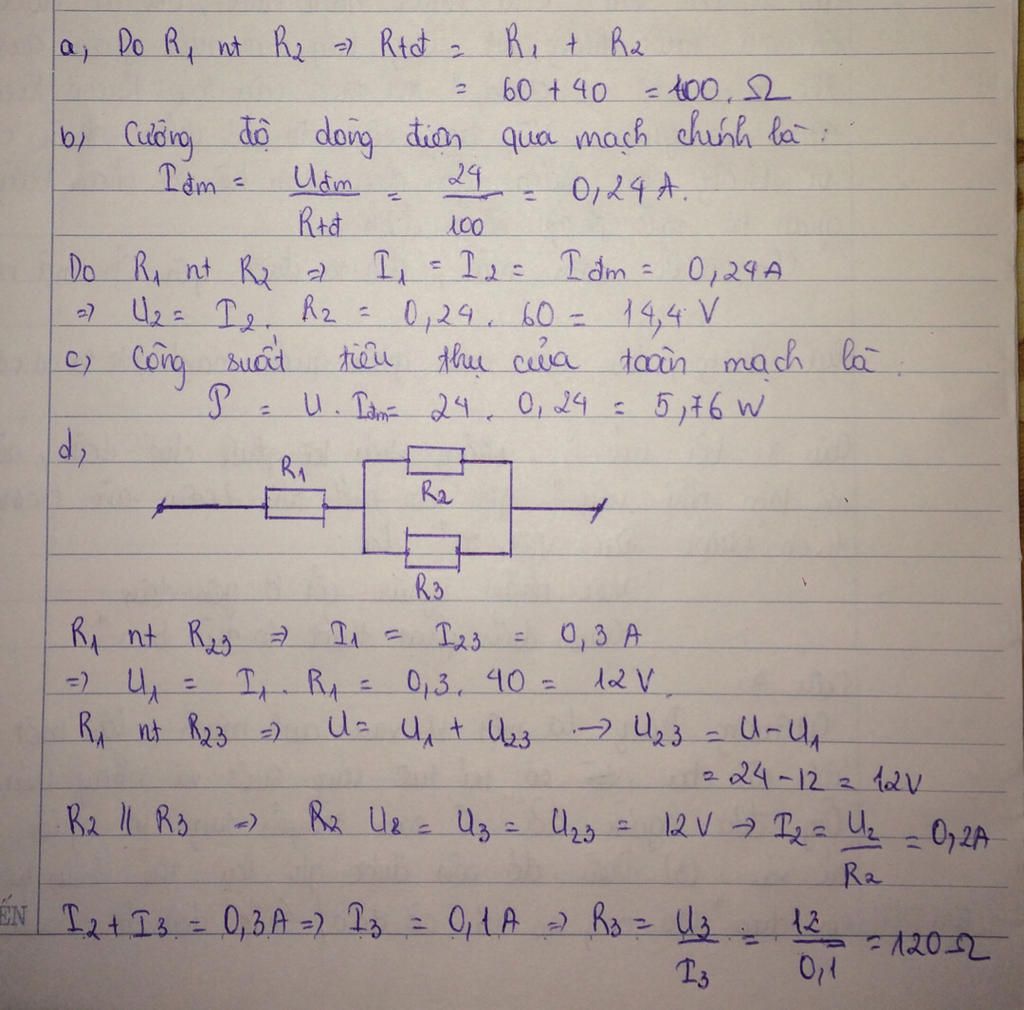 a, Do R1 nt R2 => Rtđ = R1 + R2
= 60 + 40 = 100. Ω
b) Cường độ dòng điện qua mạch chính là:
Iđm = Uđm / Rtđ = 24 / 100 = 0,24 A.
Do R1 nt R2 => I1 = I2 = Iđm = 0,24A
=> U2 = I2. R2 = 0,24. 60 = 14,4 V
c, Công suất tiêu thụ của toàn mạch là:
P = U. Iđm = 24. 0,24 = 5,76 W
d,
R1
R2
R3
R1 nt R23 => I1 = I23 = 0,3 A
=> U1 = I1. R1 = 0,3. 40 = 12 V.
R1 nt R23 => U = U1 + U23 -> U23 = U - U1
= 24 - 12 = 12V
R2 // R3 => R2 U2 = U3 = U23 = 12 V -> I2 = U2 / R2 = 0,2A
I2 + I3 = 0,3A => I3 = 0,1A => R3 = U3 / I3 = 12 / 0,1 = 120Ω
ẾN